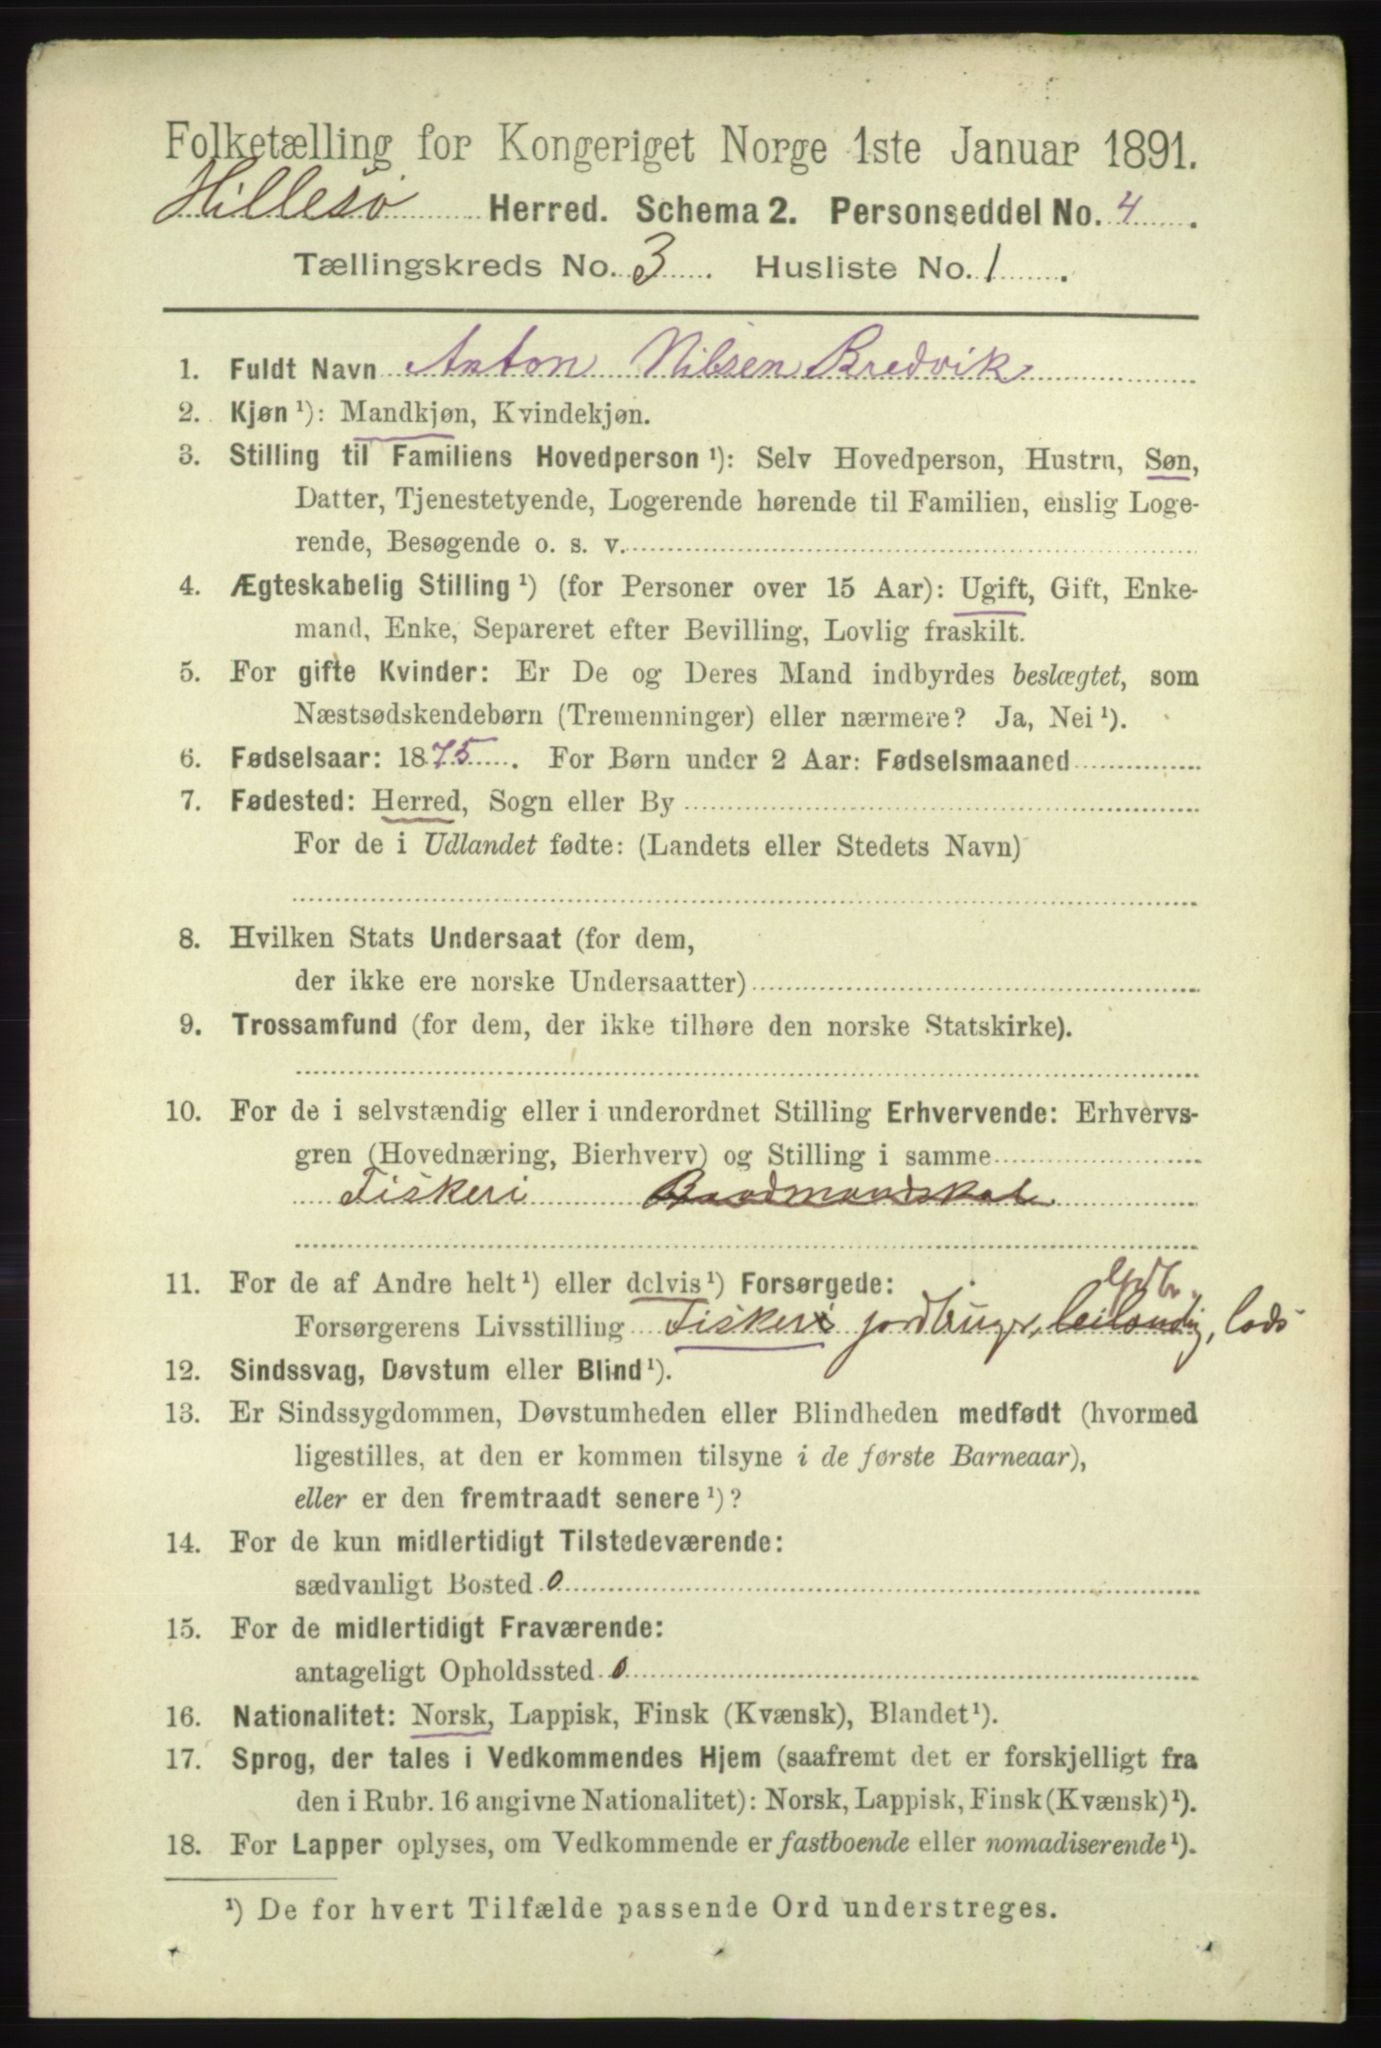 Folketælling for Kongeriget Norge 1ste Januar 1891.
Hillesø Herred. Schema 2. Personseddel No. 4.
Tællingskreds No. 3. Husliste No. 1.
1. Fuldt Navn Anton Nilsen Bredvik
2. Kjøn ¹): Mandkjøn, Kvindekjøn.
3. Stilling til Familiens Hovedperson ¹): Selv Hovedperson, Hustru, Søn,
Datter, Tjenestetyende, Logerende hørende til Familien, enslig Loge-
rende, Besøgende o. s. v.
4. Ægteskabelig Stilling ¹) (for Personer over 15 Aar): Ugift, Gift, Enke-
mand, Enke, Separeret efter Bevilling, Lovlig fraskilt.
5. For gifte Kvinder: Er De og Deres Mand indbyrdes beslægtet, som
Næstsødskendebørn (Tremenninger) eller nærmere? Ja, Nei ¹).
6. Fødselsaar: 1875. For Børn under 2 Aar: Fødselsmaaned
7. Fødested: Herred, Sogn eller By
For de i Udlandet fødte: (Landets eller Stedets Navn)
8. Hvilken Stats Undersaat (for dem,
der ikke ere norske Undersaatter)
9. Trossamfund (for dem, der ikke tilhøre den norske Statskirke).
10. For de i selvstændig eller i underordnet Stilling Erhvervende: Erhvervs-
gren (Hovednæring, Bierhverv) og Stilling i samme
Fiskeri Baadmandskab
11. For de af Andre helt ¹) eller delvis ¹) Forsørgede:
Forsørgerens Livsstilling Fiskeri jordbruger, leilændig, lods
12. Sindssvag, Døvstum eller Blind ¹).
13. Er Sindssygdommen, Døvstumheden eller Blindheden medfødt (hvormed
ligestilles, at den er kommen tilsyne i de første Barneaar),
eller er den fremtraadt senere ¹)?
14. For de kun midlertidigt Tilstedeværende:
sædvanligt Bosted 0
15. For de midlertidigt Fraværende:
antageligt Opholdssted 0
16. Nationalitet: Norsk, Lappisk, Finsk (Kvænsk), Blandet ¹).
17. Sprog, der tales i Vedkommendes Hjem (saafremt det er forskjelligt fra
den i Rubr. 16 angivne Nationalitet): Norsk, Lappisk, Finsk (Kvænsk) ¹).
18. For Lapper oplyses, om Vedkommende er fastboende eller nomadiserende ¹).
¹) De for hvert Tilfælde passende Ord understreges.